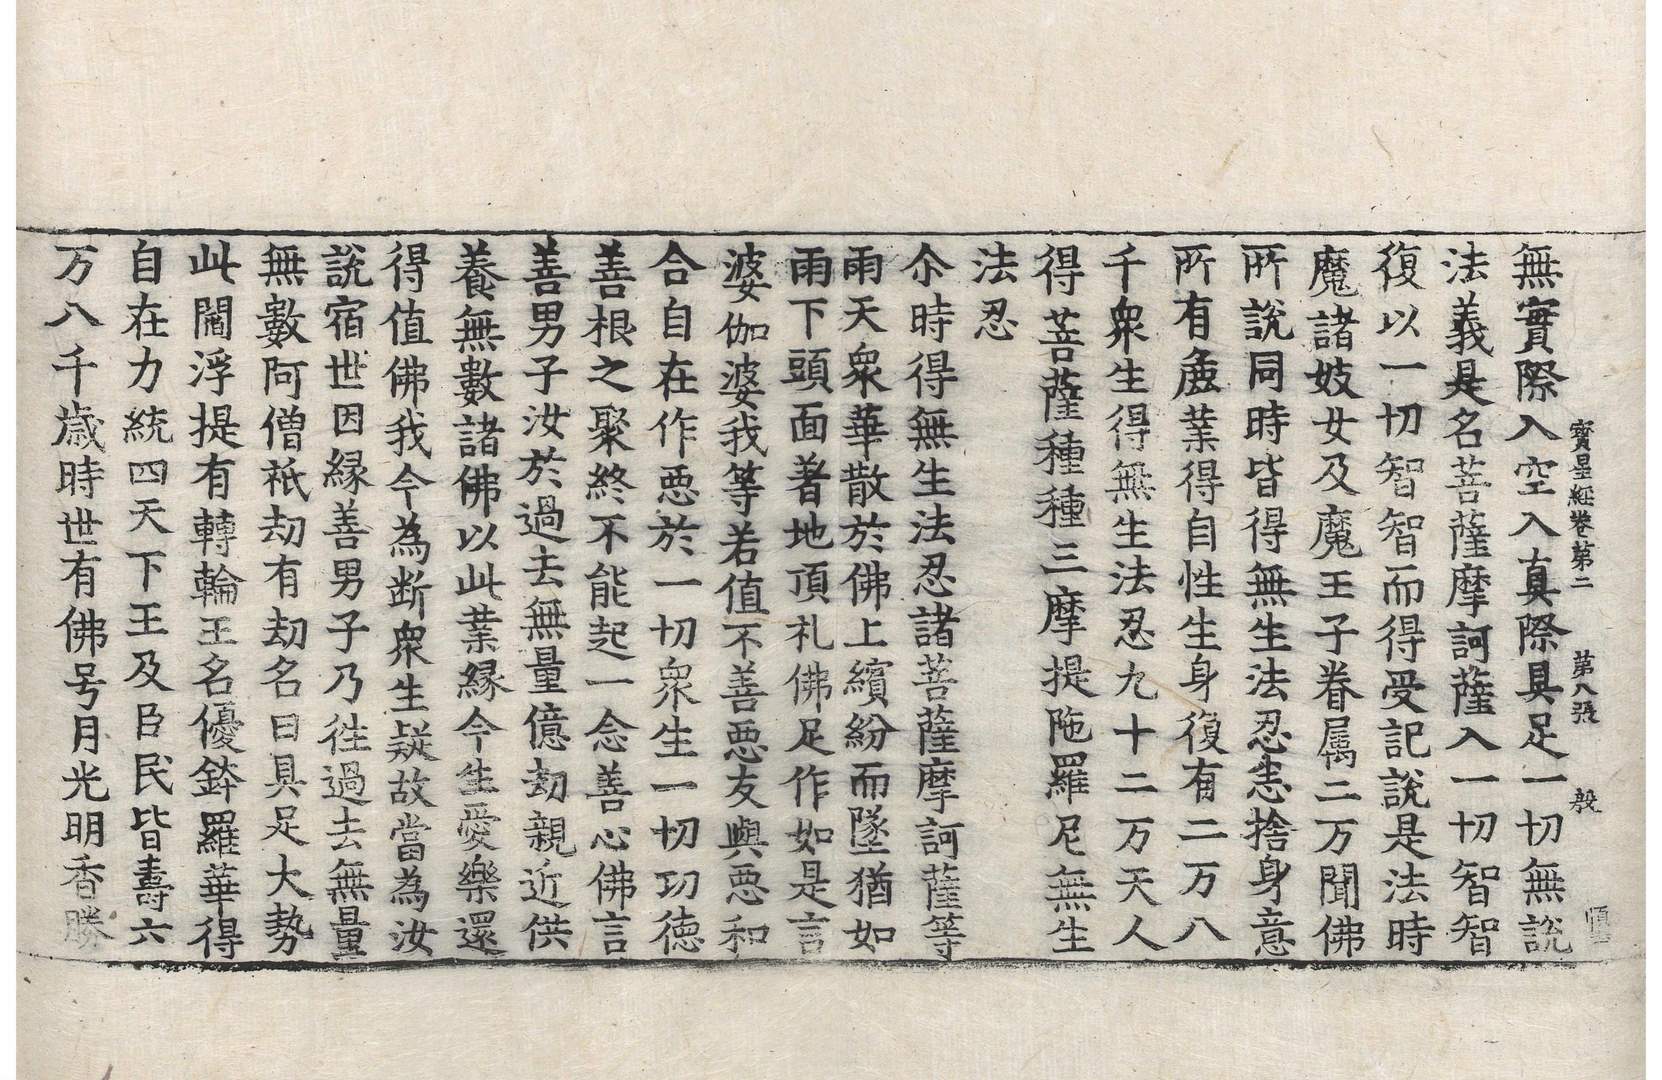 寶星經卷第二 第八張 殷
無實際入空入真際具足一切無說
法義是名菩薩摩訶薩入一切智智
復以一切智智而得受記說是法時
魔諸妓女及魔王子眷属二万聞佛
所說同時皆得無生法忍悉捨身意
所有麁業得自性生身復有二万八
千衆生得無生法忍九十二万天人
得菩薩種種三摩提陁羅尼無生
法忍
尒時得無生法忍諸菩薩摩訶薩等
雨天衆華散於佛上繽紛而墜猶如
雨下頭面著地頂礼佛足作如是言
婆伽婆我等若值不善惡友與惡和
合自在作惡於一切衆生一切功德
善根之聚終不能起一念善心佛言
善男子汝於過去無量億劫親近供
養無數諸佛以此業緣今生愛樂還
得值佛我今為断衆生疑故當為汝
說宿世因緣善男子乃徃過去無量
無數阿僧祇劫有劫名曰具足大勢
此閻浮提有轉輪王名優鉢羅華得
自在力統四天下王及臣民皆壽六
万八千歲時世有佛号月光明香勝